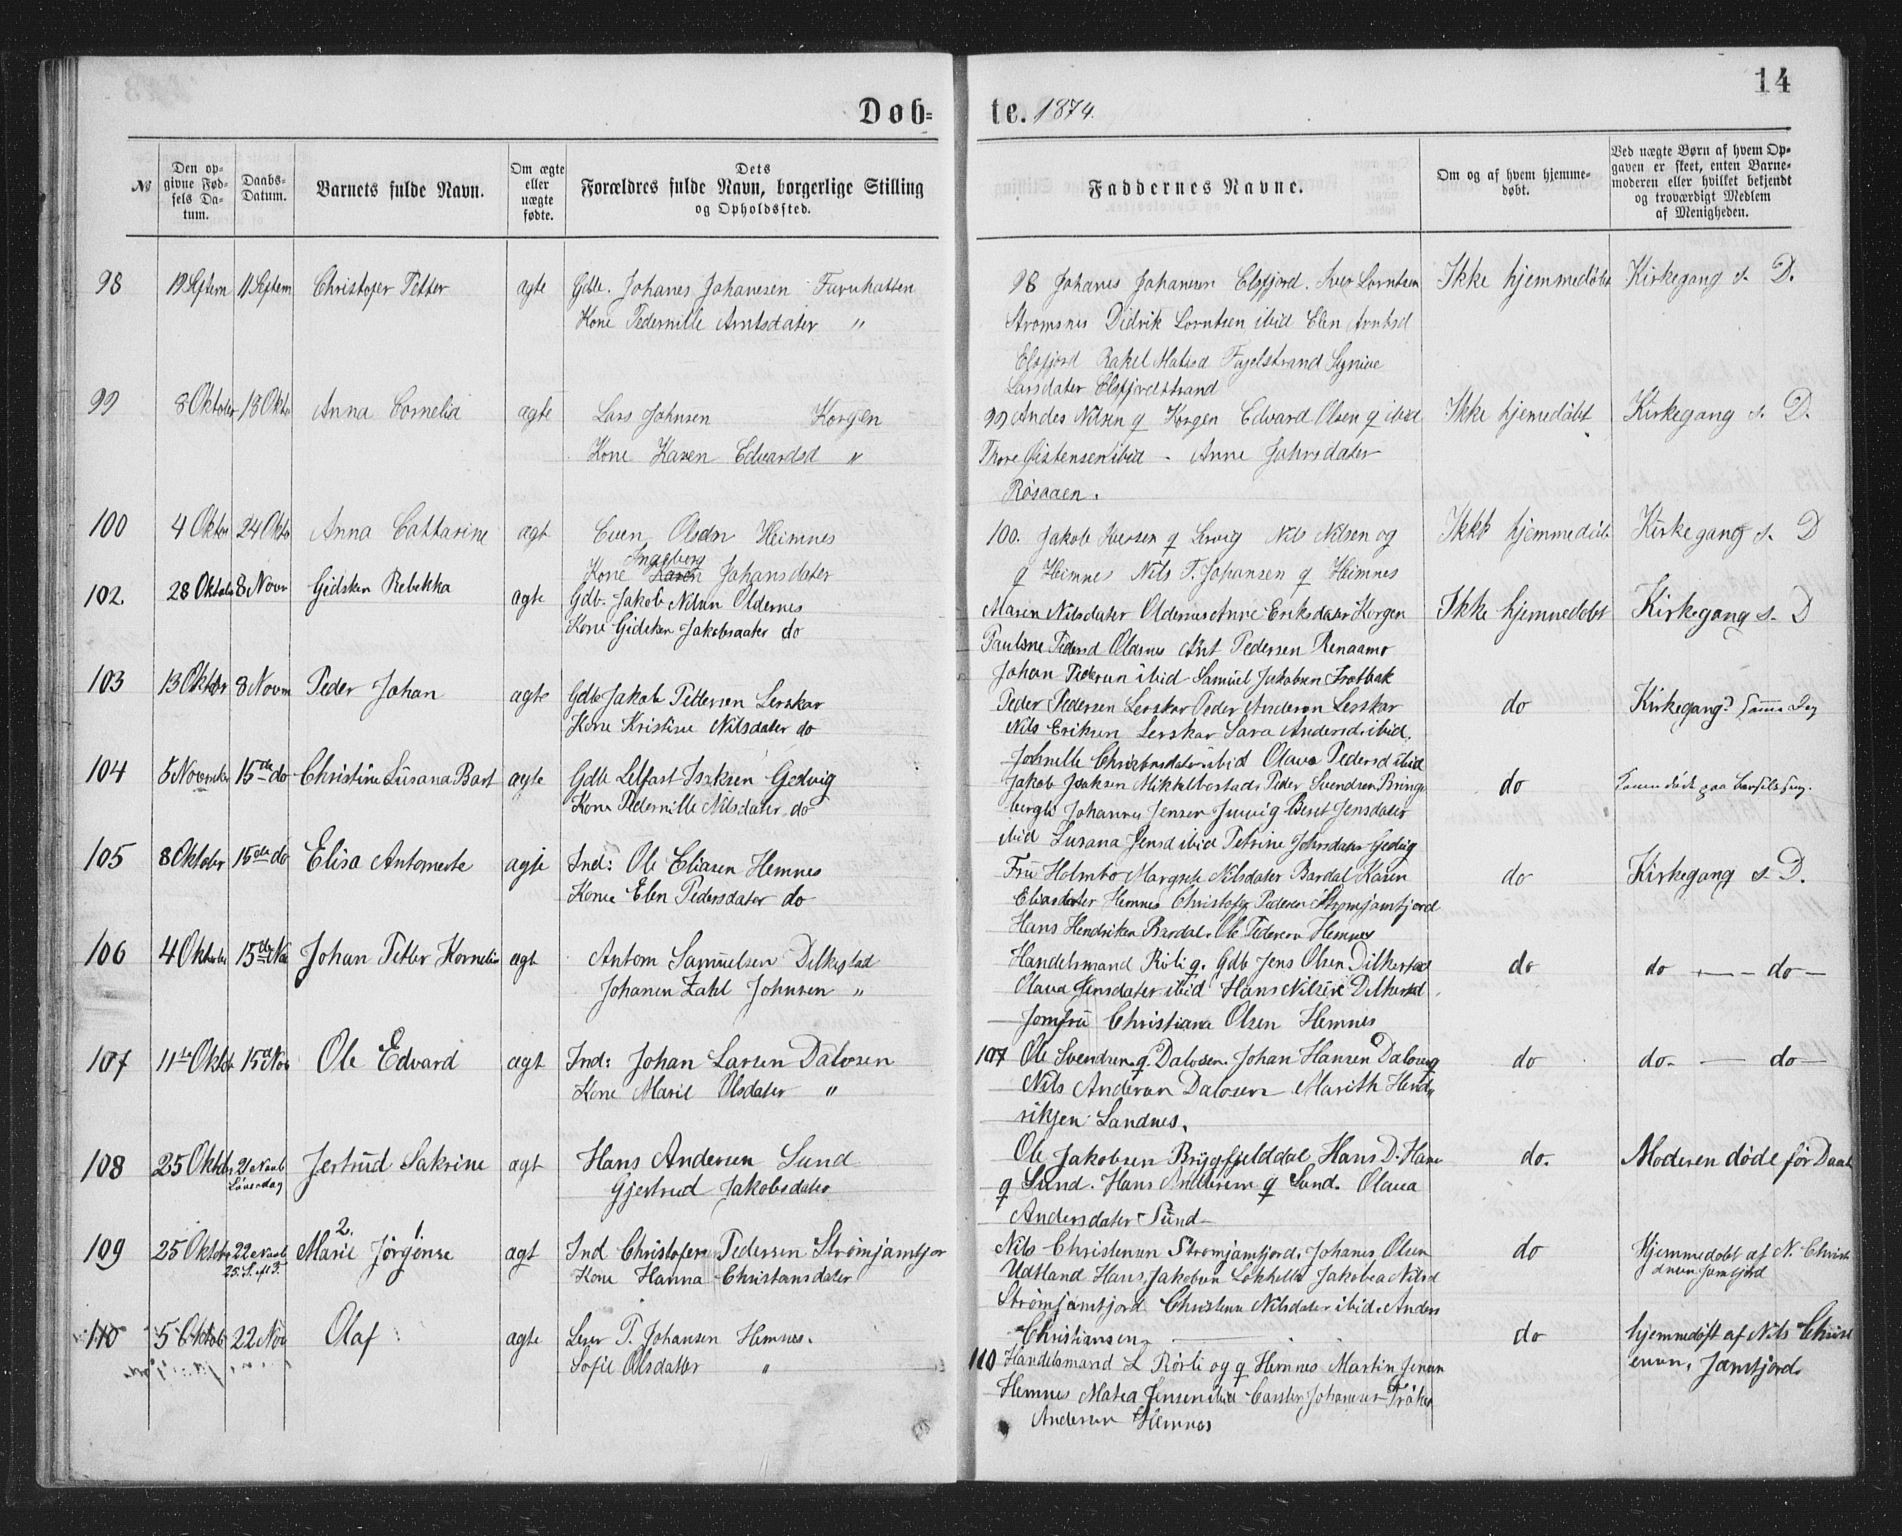 14
Døb=
te. 1874.
№
Den op-
givne Fød-
sels Da-
tum.
Daabs-
Datum.
Barnets fulde Navn.
Om ægte
eller
uægte
fødte.
Dets
Forældres fulde Navn, borgerlige Stilling
og Opholdssted.
Faddernes Navne.
Om og af hvem hjemme-
døbt.
Ved uægte Børn af hvem Op-
gaven er skeet, enten Barne-
moderen eller hvilket bekjendt
og troværdigt Medlem
af Menigheden.
98 Septem 11 Septem Christofer Petter ægte Gdb. Johanes Johanesen
Kone Pedernille Arntsdater "
98 Johanes Johanesen Elsfjord. Iver Lorntsen
Stromsnes Didrik Lorntsen ibid Elen Arntsd
Elsfjord Rakel Matisd Fagelstrand
Larsdater Elsfjordstrand
Ikke hjemmedøbt Kirkegang s. D.
99 8 Oktober 18 Okto Anna Cornelia ægte Lars Johnsen Korgen
Kone Karen Edvardsd "
99 Andes Nilsen g Korgen Edvard Olsen g ibid
Thore Øistensen ibid - Anne Jahnsdater
Røsaaen.
Ikke hjemedøbt Kirkegang s. D.
100 4 Oktob 24 Okto Anna Cattarine ægt Even Olsen Heimnes
Ingeberg
Kone Karen Johansdater
100. Jakob Iversen g Lervig Nils Nilsen og
g Heimnes Nils T. Johansen g Heimnes
Ikke hjemmedøbt Kirkegang s. D
102 28 Oktober 8 Novr Gidsken Rebekka ægte Gdb. Jakob Nilsen Oldernes
Kone Gidsken Jakobsdater do
Maren Nilsdater Oldernes Anne Eriksdater Korgen
Pauline Pedersd Oldernes Art Pedersen Renaamo
Johan Pedersen ibid Samuel Jakobsen Frotbak
Ikke hjemmedøbt Kirkegang s. D
103 13 Oktober 8 Novm Peder Johan ægte Gdb Jakob Pettersen Lerskar
Kone Kristine Nilsdater do
Peder Pedersen Lerskar Peder Andersen Lerskar
Nils Eriksen Lerskar Sara Andersd ibid.
Johnille Christensdater ibid Olava Pedersd ibid
do Kirkegang? samme Dag
104 5 November 15de do Christine Susana Bart ægte Gdb Lelfast Isaksen Gedvig
Kone Pedernille Nilsdater do
Jakob Isaksen Mikkelbostad Peder Svendsen Bringe
bergli Johannes Jensen Juvvig Beret Jensdater
ibid Susana Jensd ibid Petrine Johnsdater Gedvig
do Konen døde paa Barselseng.
105 8 Oktober 15de do Elisa Antomerte ægte Ind: Ole Eliasen Hemnes
Kone Elen Pedersdater do
Fru Holmbo Margrete Nilsdater Bardal Karen
Eliasdater Hemnes Christofer Pedersen Strømjamtfjord
Hans Hendriksen Bardal. Ole Pedersen Hemnes
do Kirkegang s. D.
106 4 Oktober 15de Nov Johan Petter Kornelius ægt Antom Samuelsen Dilkestad
Johanen Zahl Johnsen "
Handelsmand Rørli g. Gdb Jens Olsen Dilkestad
Olava Jensdater ibid Hans Nilsen Dilkestad
Jomfru Christiana Olsen Hemnes
do do - - do -
107 11te Oktob 15de Nov Ole Edvard ægt Ind: Johan Larsen Dalosen
Kone Marie Olsdater "
107 Ole Svendsen g Dalosen. Johan Hansen Dalosen g
Nils Andersen Dalosen Marith Hend
riksen Sandnes.
do do - - do -
108 25 Oktober 21 Novb Jertrud Sakrine ægt Hans Andersen Sund
Løverdag
Gjertrud Jakobsdater
Ole Jakobsen Brygfjelddal Hans D. Hans
g Sund. Hans Andersen g Sund. Olava
Andersdater Sund
do. Moderen døde før Daab
109 25 Oktober 22 Novb Marie 2. Jørgense 1 ægt Ind Christofer Pedersen Strømjamtfjor
25. S. eft T.
Kone Hanna Christansdater
Nils Christensen Strømjamtfjord, Johanes Olsen
Udtland Hans Jakobsen Løkhelle Jakobea Nilsd
Strømjamtfjord Christense Nilsdater ibid. Anders
Christiansen
do Hjemmedøbt af N. Christe
ensen Jamtfjord
110 5 Oktob 22 Nov Olaf ægte P. Johansen Hemnes.
Sofie Olsdatter "
110 Handelsmand L Rørli og g Hemnes Martin Jensen
Hemnes Matea Jensen ibid Carsten Johansen
Andersen Hemnes
do hjemmedøft af Nils Christ
ensen, Jamtfjord